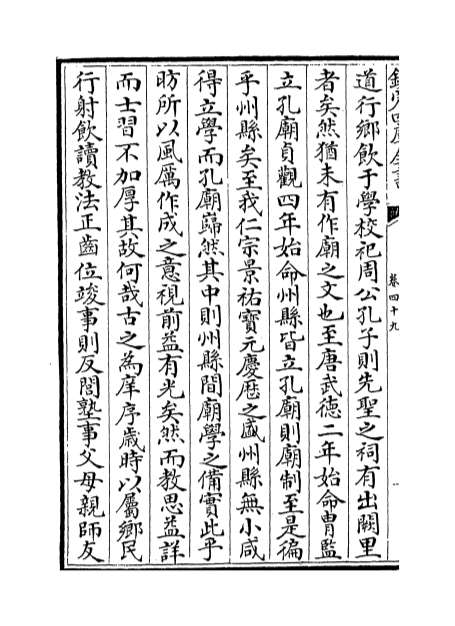 欽定四庫全書
卷四十九
道行鄉飲于學校祀周公孔子則先聖之祠有出闕里
者矣然猶未有作廟之文也至唐武德二年始命胄監
立孔廟貞觀四年始命州縣皆立孔廟則廟制至是徧
乎州縣矣至我仁宗景祐寶元慶厯之盛州縣無小咸
得立學而孔廟巋然其中則州縣間廟學之備實此乎
昉所以風厲作成之意視前益有光矣然而教思益詳
而士習不加厚其故何哉古之為庠序歳時以屬鄉民
行射飲讀教法正齒位竣事則反閭塾事父母親師友